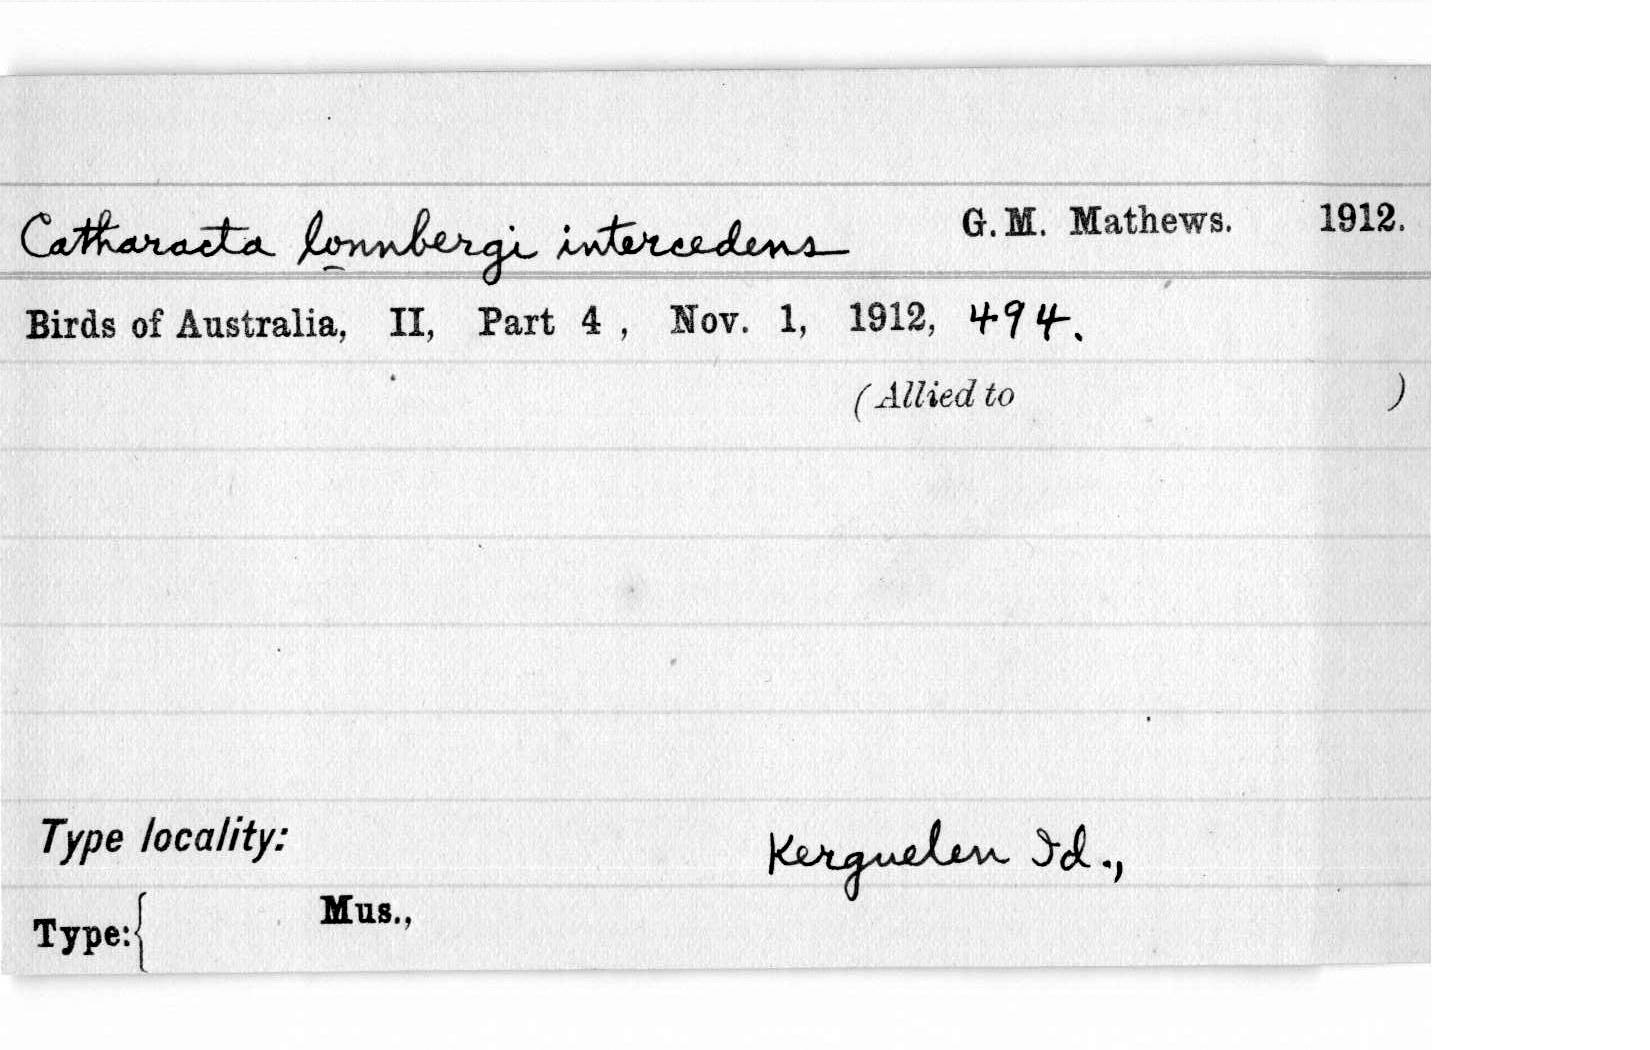 Catharacta lonnbergi intercedens G. M. Mathews. 1912.
Birds of Australia, II, Part 4 , Nov. 1, 1912, 494.
(Allied to )
Type locality: Kerguelen Id.,
Type:{ Mus.,